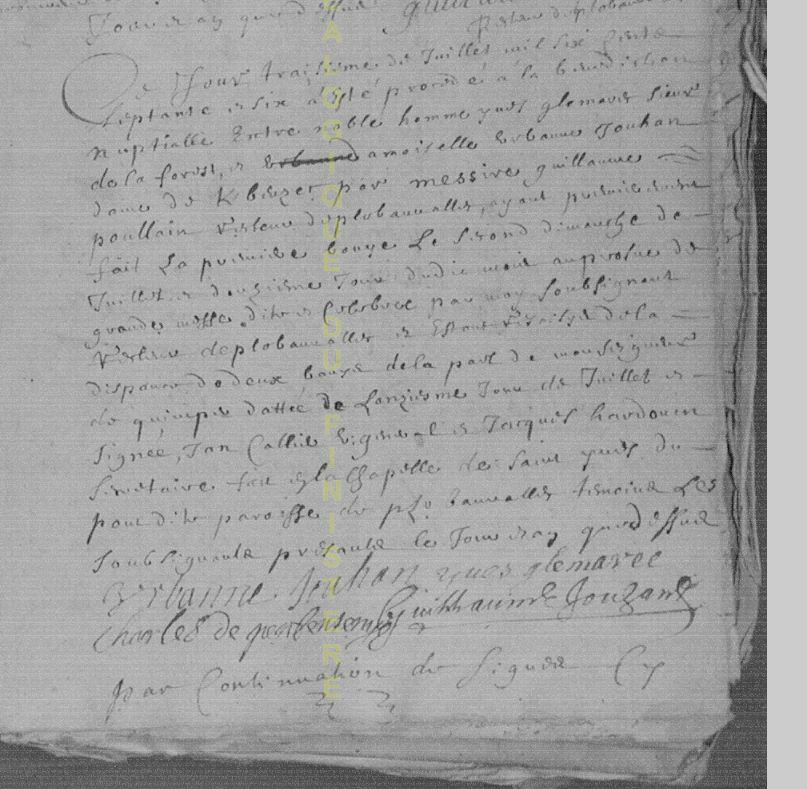 Jour et an que dessus
Ce Jour traisiesme de Juillet mil six cents
septante et six a esté procedé a la benediction
nuptialle Entre noble homme yves glemarec sieur
de la forest, et Urbanne damoiselle Urbanne Jouhan
dame de par messire guillaume
poullain Viskaire deplobannallec, ayant
fait La premiere banye Le segond dimanche de
Juillet et douziesme Jour dudic mois au prosne de
grande messe dite et Celebree par moy soubsignant
Viskaire deplobannallec et
dispance de deux banye de la part de monseigneur
de quimper dattée de Lonziesme Jour de Juillet et
signée, Jan Callier V. general et Jacques hardouin
secretaire fait en la Chapelle de Saint yves du
pont dite paroisse de plo bannallec temoins Les
soubsignants presants le Jour et an que dessus
Urbanne Jouhan yves glemarec
Charles de Guilhaume Jouhan
par Continuation de signes